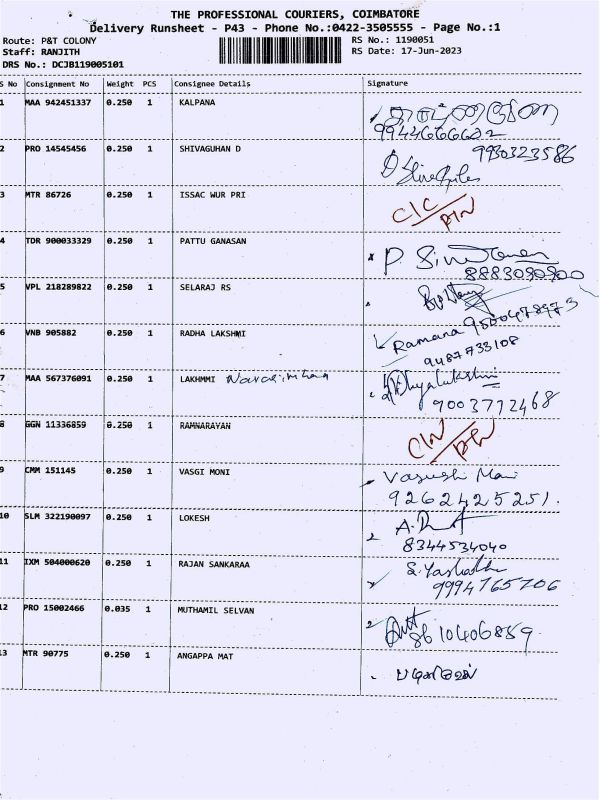 THE PROFESSIONAL COURIERS, COIMBATORE
Delivery Runsheet - P43 - Phone No.:0422-3505555 - Page No.:1
Route: P&T COLONY
Staff: RANJITH
DRS No.: DCJB119005101
RS No.: 1190051
RS Date: 17-Jun-2023
S No Consignment No Weight PCS Consignee Details Signature
1 MAA 942451337 0.250 1 KALPANA
2 PRO 14545456 0.250 1 SHIVAGUHAN D
3 MTR 86726 0.250 1 ISSAC WUR PRI
4 TDR 900033329 0.250 1 PATTU GANASAN P.
8883090900
5 VPL 218289822 0.250 1 SELARAJ RS
6 VNB 905882 0.250 1 RADHA LAKSHMI Ramana 9500478973
9487733108
7 MAA 567376091 0.250 1 LAKHMMI Narasimhan
9003772468
8 GGN 11336859 0.250 1 RAMNARAYAN
9 CMM 151145 0.250 1 VASGI MONI Vasughi Mani
9262425251.
10 SLM 322190097 0.250 1 LOKESH
8344534040
11 IXM 504000620 0.250 1 RAJAN SANKARAA
9994765706
12 PRO 15002466 0.035 1 MUTHAMIL SELVAN
8610406859
13 MTR 90775 0.250 1 ANGAPPA MAT